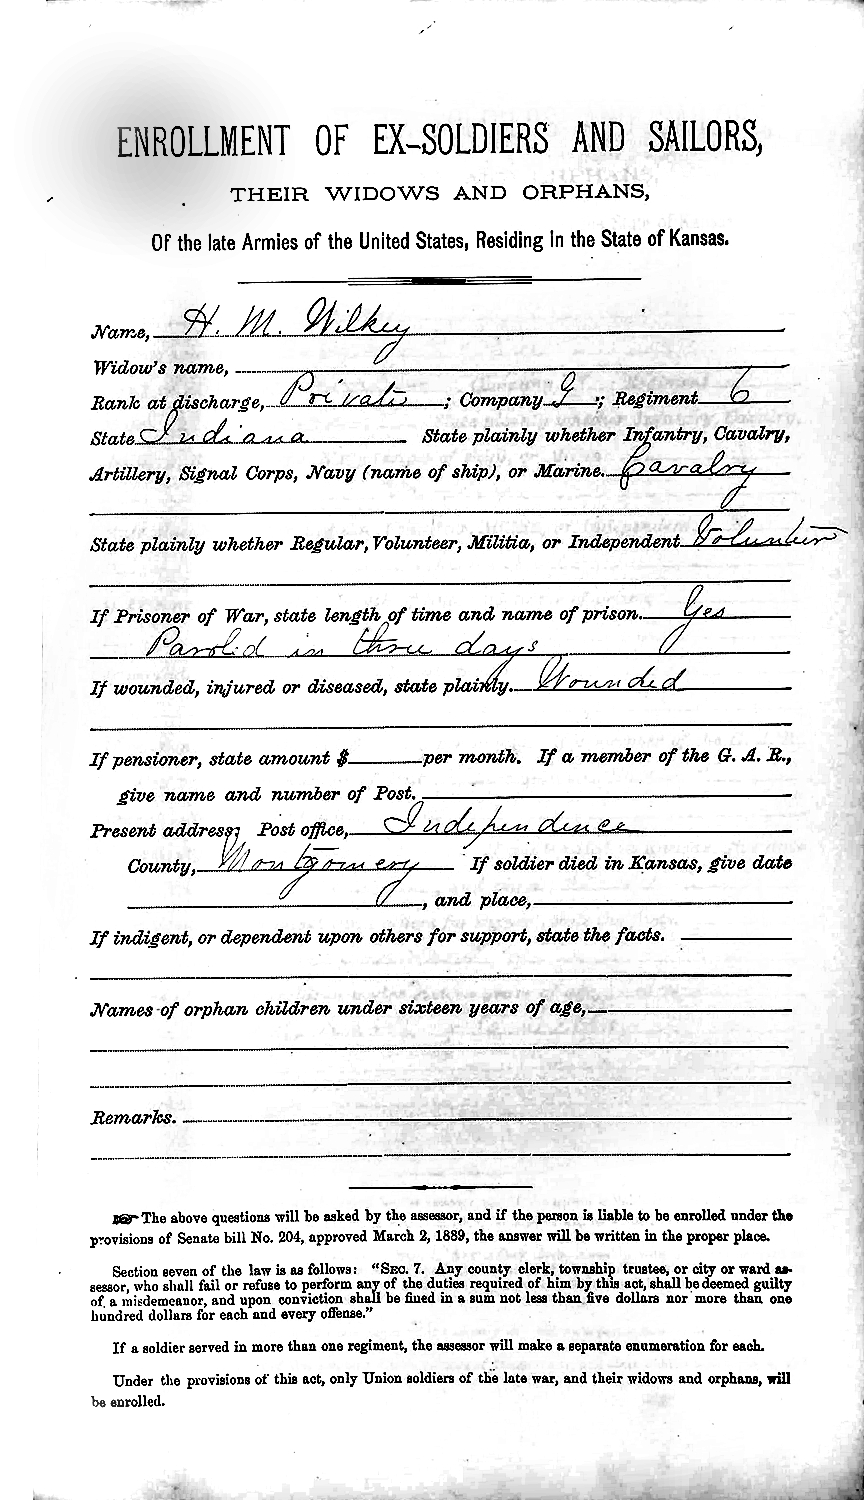 ENROLLMENT OF EX-SOLDIERS AND SAILORS,
THEIR WIDOWS AND ORPHANS,
Of the late Armies of the United States, Residing in the State of Kansas.
Name, H. M. Wilkey
Widow's name,
Rank at discharge, Private ; Company G ; Regiment 6
State Indiana State plainly whether Infantry, Cavalry,
Artillery, Signal Corps, Navy (name of ship), or Marine. Cavalry
State plainly whether Regular, Volunteer, Militia, or Independent Volunteer
If Prisoner of War, state length of time and name of prison. Yes
Parolid in three days
If wounded, injured or diseased, state plainly. Wounded
If pensioner, state amount $ per month. If a member of the G. A. R.,
give name and number of Post.
Present address; Post office, Independence
County, Montgomery If soldier died in Kansas, give date
, and place,
If indigent, or dependent upon others for support, state the facts.
Names of orphan children under sixteen years of age,
Remarks.
☞ The above questions will be asked by the assessor, and if the person is liable to be enrolled under the
provisions of Senate bill No. 204, approved March 2, 1889, the answer will be written in the proper place.
Section seven of the law is as follows: "SEC. 7. Any county clerk, township trustee, or city or ward as-
sessor, who shall fail or refuse to perform any of the duties required of him by this act, shall be deemed guilty
of a misdemeanor, and upon conviction shall be fined in a sum not less than five dollars nor more than one
hundred dollars for each and every offense."
If a soldier served in more than one regiment, the assessor will make a separate enumeration for each.
Under the provisions of this act, only Union soldiers of the late war, and their widows and orphans, will
be enrolled.